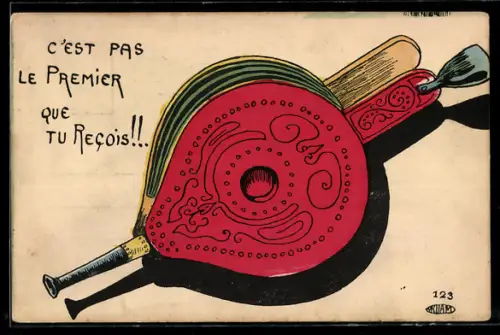 C'EST PAS
LE PREMIER
QUE
TU REÇOIS!!.
123